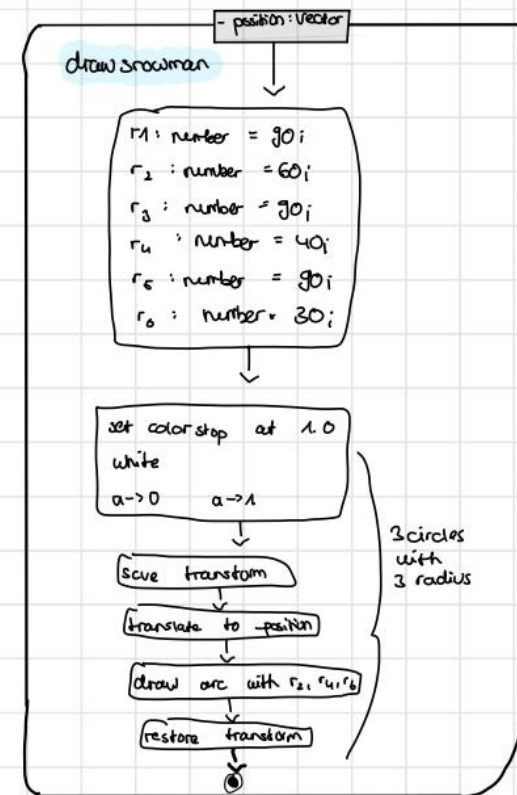 - position: Vector
draw snowman
r1: number = 90;
r2: number = 60;
r3: number = 90;
r4: number = 40;
r5: number = 90;
r6: number = 30;
set color stop at 1.0
white
a->0 a->1
3 circles
with
3 radius
save transform
translate to _position
draw arc with r2, r4, r6
restore transform